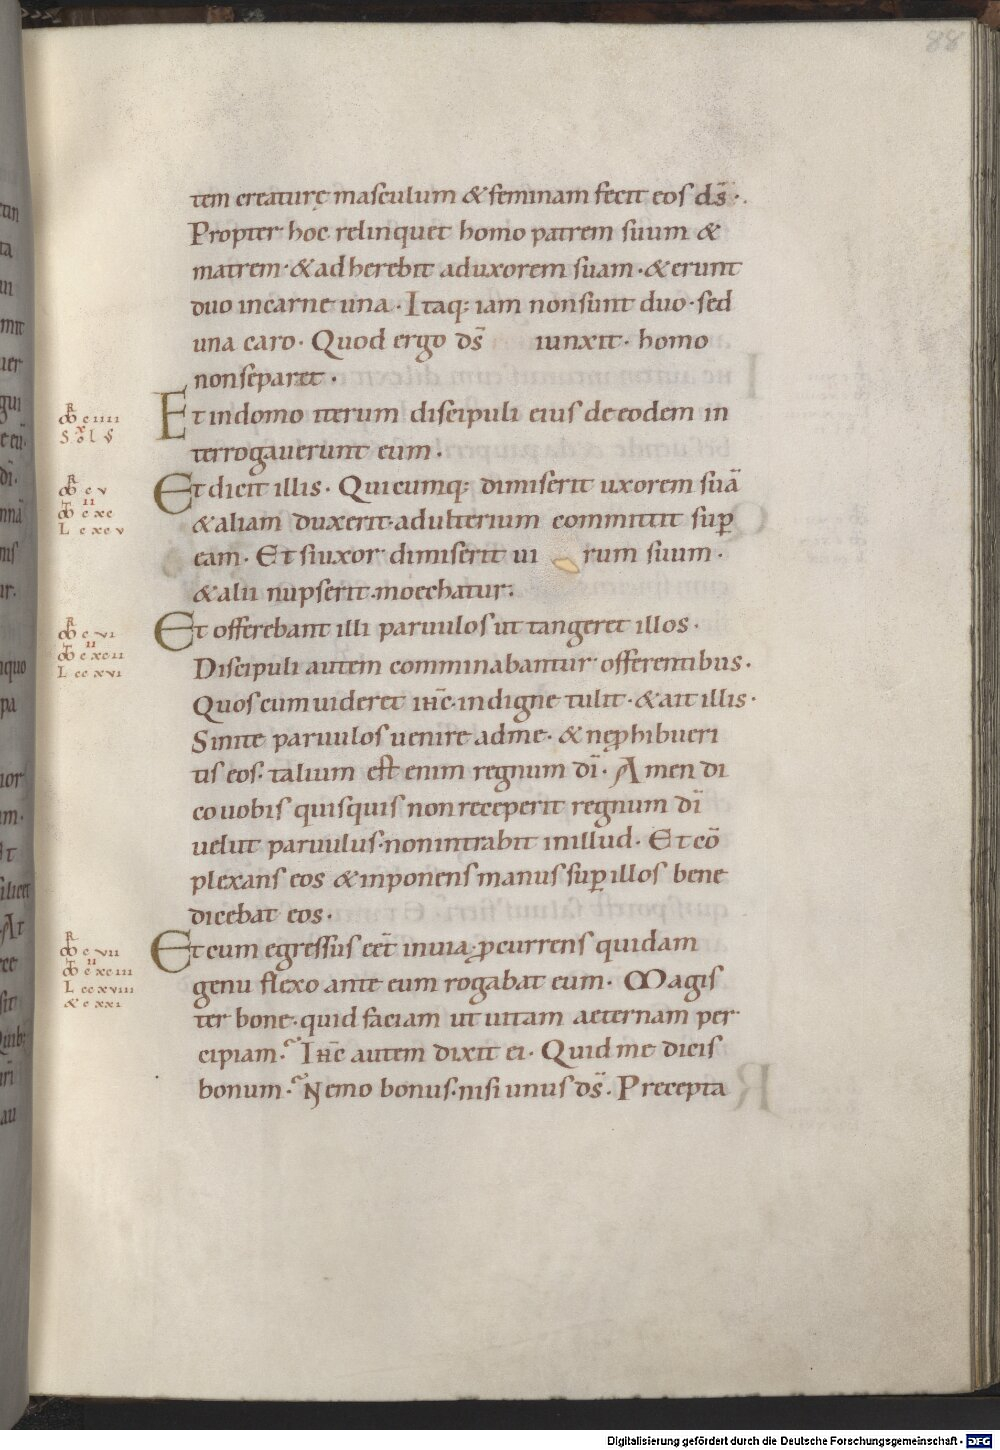 88
tem creaturę masculum & feminam fecit eos d̄s.
Propter hoc relinquet homo patrem suum &
matrem · & adherebit ad uxorem suam · & erunt
duo in carne una · Itaq; iam non sunt duo · sed
una caro · Quod ergo d̄s iunxit · homo
non separet ·
Et in domo iterum discipuli eius de eodem in
terrogauerunt eum ·
Et dicit illis · Quicumq; dimiserit uxorem suā
& aliam duxerit · adulterium committit sup̄
eam · Et si uxor dimiserit ui rum suum ·
& alii nupserit · moechatur ·
Et offerebant illi paruulos ut tangeret illos ·
Discipuli autem comminabantur offerentibus ·
Quos cum uideret ih̄c · indigne tulit · & ait illis ·
Sinite paruulos uenire ad me · & ne ꝓhibueri
tis eos · talium est enim regnum dī · Amen di
co uobis quisquis non receperit regnum dī
uelut paruulus · non intrabit in illud · Et cō
plexans eos & inponens manus sup̄ illos bene
dicebat eos ·
Et cum egressus eēt in uia ꝓcurrens quidam
genu flexo ante eum rogabat eum · Magis
ter bone · quid faciam ut uitam aeternam per
cipiam · Ih̄c autem dixit ei · Quid me dicis
bonum · Nemo bonus · nisi unus d̄s · Precepta
Digitalisierung gefördert durch die Deutsche Forschungsgemeinschaft - DFG